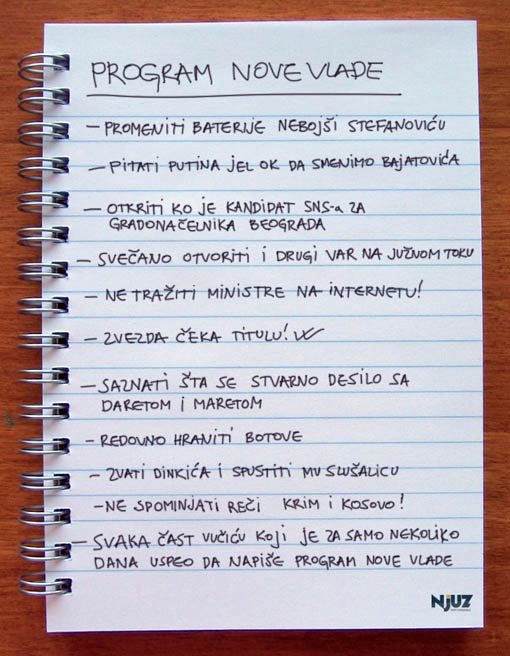 PROGRAM NOVE VLADE
- PROMENITI BATERIJE NEBOJŠI STEFANOVIĆU
- PITATI PUTINA JEL OK DA SMENIMO BAJATOVIĆA
- OTKRITI KO JE KANDIDAT SNS-a ZA
GRADONAČELNIKA BEOGRADA
- SVEČANO OTVORITI I DRUGI VAR NA JUŽNOM TOKU
- NE TRAŽITI MINISTRE NA INTERNETU!
- ZVEZDA ČEKA TITULU!
- SAZNATI ŠTA SE STVARNO DESILO SA
DARETOM I MARETOM
- REDOVNO HRANITI BOTOVE
- ZVATI DINKIĆA I SPUSTITI MU SLUŠALICU
- NE SPOMINJATI REČI KRIM I KOSOVO!
- SVAKA ČAST VUČIĆU KOJI JE ZA SAMO NEKOLIKO
DANA USPEO DA NAPIŠE PROGRAM NOVE VLADE
NJUZ